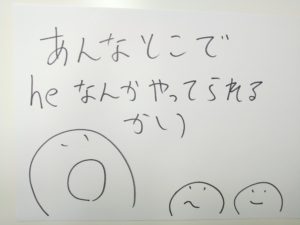 あんなとこで
he なんかやってられる
かい)